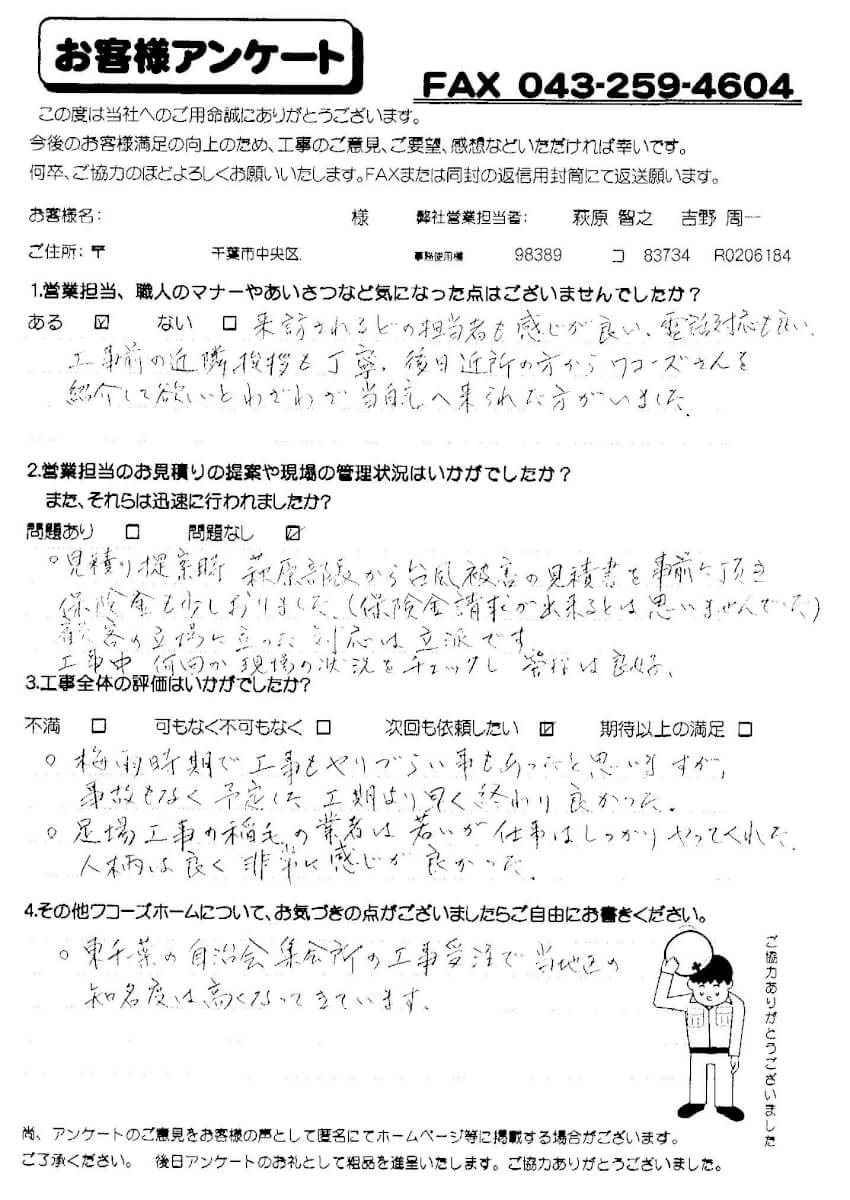 お客様アンケート
FAX 043-259-4604
この度は当社へのご用命誠にありがとうございます。
今後のお客様満足の向上のため、工事のご意見、ご要望、感想などいただければ幸いです。
何卒、ご協力のほどよろしくお願いいたします。FAXまたは同封の返信用封筒にて返送願います。
お客様名: 様 弊社営業担当者: 萩原 智之 吉野 周一
ご住所:〒 千葉市中央区 事務使用欄 98389 コ 83734 R0206184
1.営業担当、職人のマナーやあいさつなど気になった点はございませんでしたか?
ある ☑ ない □ 来訪されるどの担当者も感じが良い、電話対応も良い、
工事前の近隣挨拶も丁寧。後日近所の方からワコーズさんを
紹介して欲しいとわざわざ当自宅へ来られた方がいました。
2.営業担当のお見積りの提案や現場の管理状況はいかがでしたか?
また、それらは迅速に行われましたか?
問題あり □ 問題なし ☑
○見積り提案時 萩原部長から台風被害の見積書を事前に頂き
保険金も少しおりました。(保険金請求が出来るとは思いませんでした)
顧客の立場に立った対応は立派です
工事中 何回か現場の状況をチェックし 管理は良好、
3.工事全体の評価はいかがでしたか?
不満 □ 可もなく不可もなく □ 次回も依頼したい ☑ 期待以上の満足 □
○ 梅雨時期で工事もやりづらい事もあったと思いますが、
事故もなく予定した工期より早く終わり良かった。
○ 足場工事の稲毛の業者は若いが仕事はしっかりやってくれた
人柄は良く非常に感じが良かった。
4.その他ワコーズホームについて、お気づきの点がございましたらご自由にお書きください。
○ 東千葉の自治会集会所の工事受注で当地区の
知名度は高くなってきています。
ご協力ありがとうございました
尚、アンケートのご意見をお客様の声として匿名にてホームページ等に掲載する場合がございます。
ご了承ください。 後日アンケートのお礼として粗品を進呈いたします。ご協力ありがとうございました。